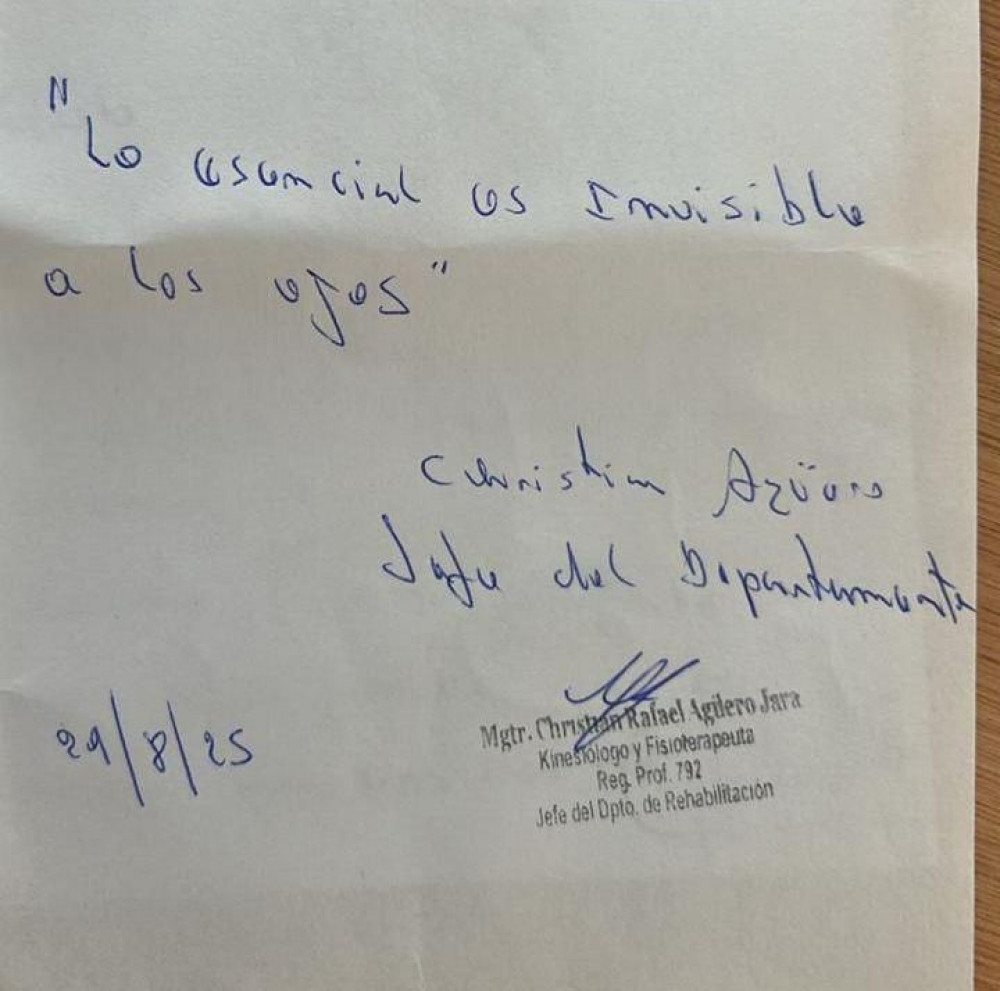 "Lo esencial es Invisible
a los ojos"
Christian Agüero
Jefe del Departamento
Mgtr. Christian Rafael Agüero Jara
Kinesiólogo y Fisioterapeuta
Reg. Prof. 792
Jefe del Dpto. de Rehabilitación
29/8/25